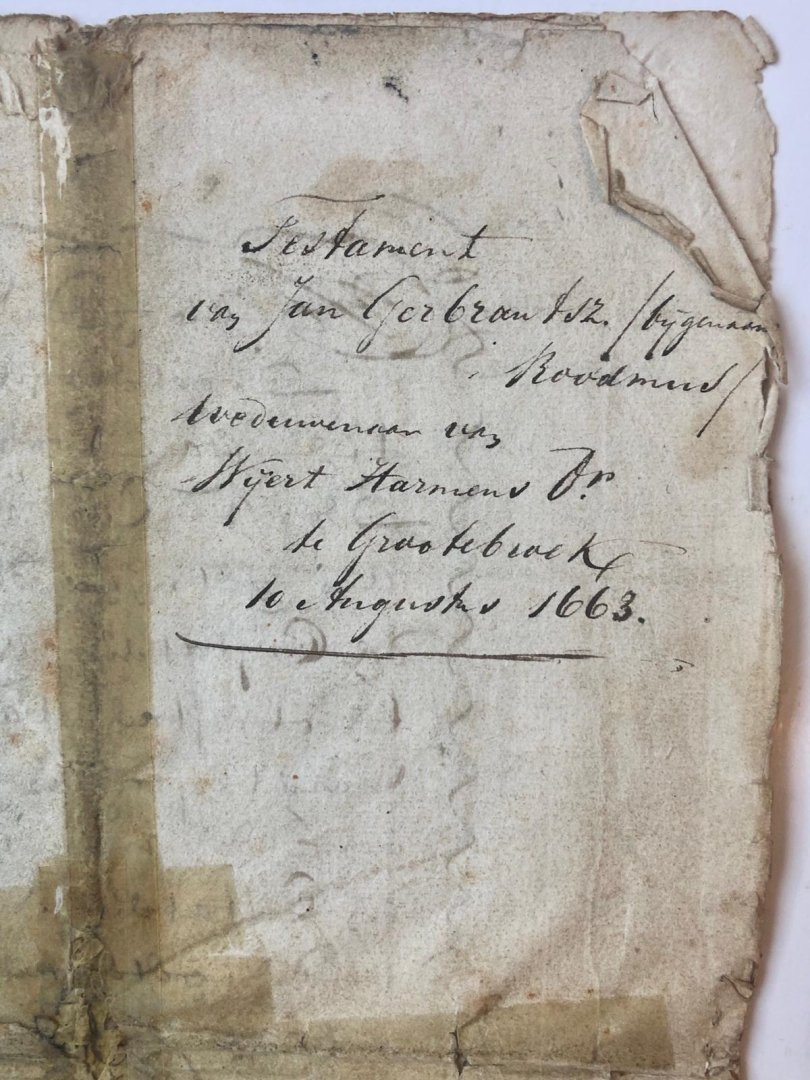 Testament
van Jan Gerbrantsz. /bijgenaam
Roodmus/
weduwenaar van
Wijert Harmens Dr.
te Grootebroek
10 Augustus 1663.